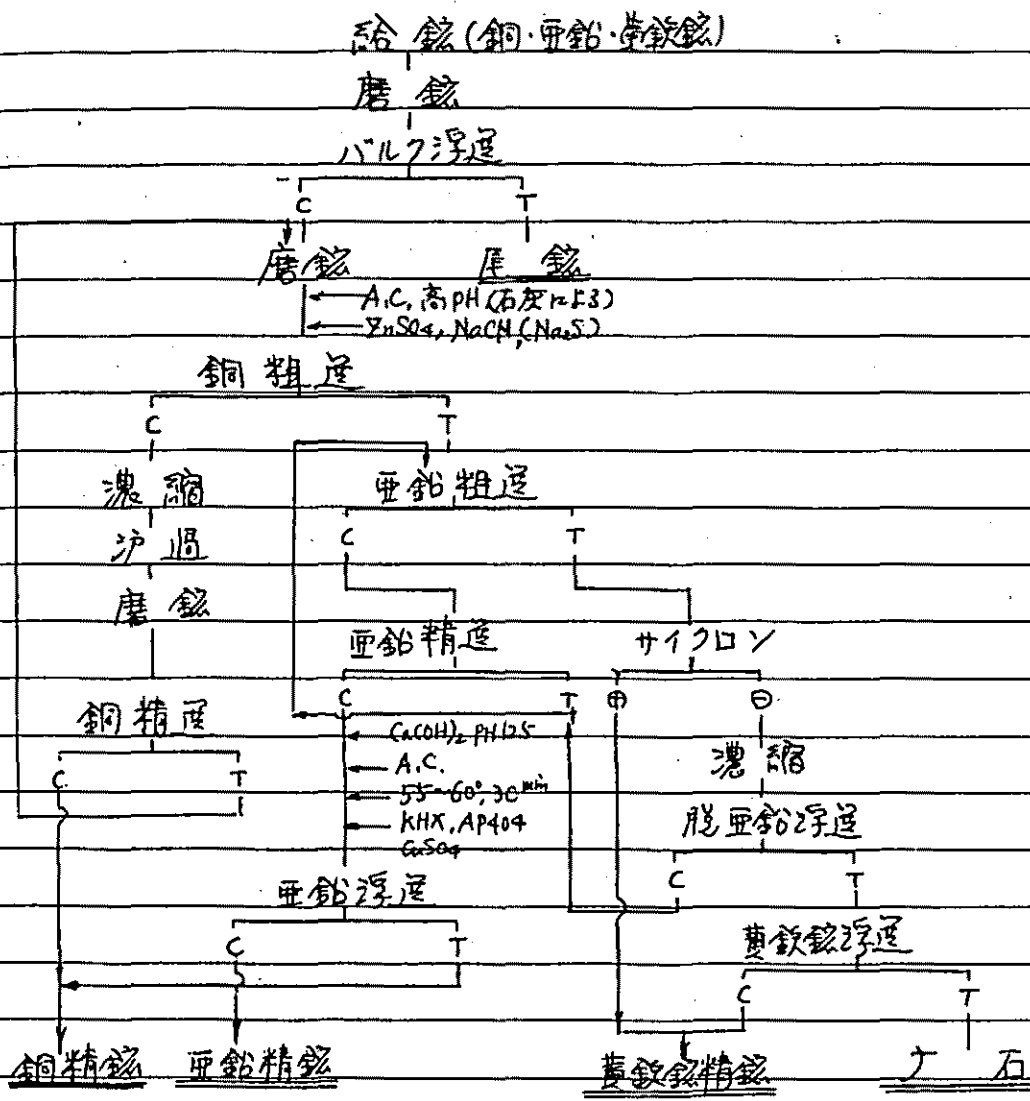 給鉱(銅・亜鉛・黄鉄鉱)
磨鉱
バルク浮選
C T
磨鉱 尾鉱
A.C, 高pH(石灰による)
ZnSO4, NaCN, (Na2S)
銅粗選
C T
濃縮 亜鉛粗選
沪過 C T
磨鉱
亜鉛精選 サイクロン
C T ⊕ ⊖
銅精選 Ca(OH)2 PH12.5 濃縮
C T A.C.
55~60°, 30min
KHX, AP404 脱亜鉛浮選
CuSO4
C T
亜鉛浮選
C T 黄鉄鉱浮選
C T
銅精鉱 亜鉛精鉱 黄鉄鉱精鉱 ナ石